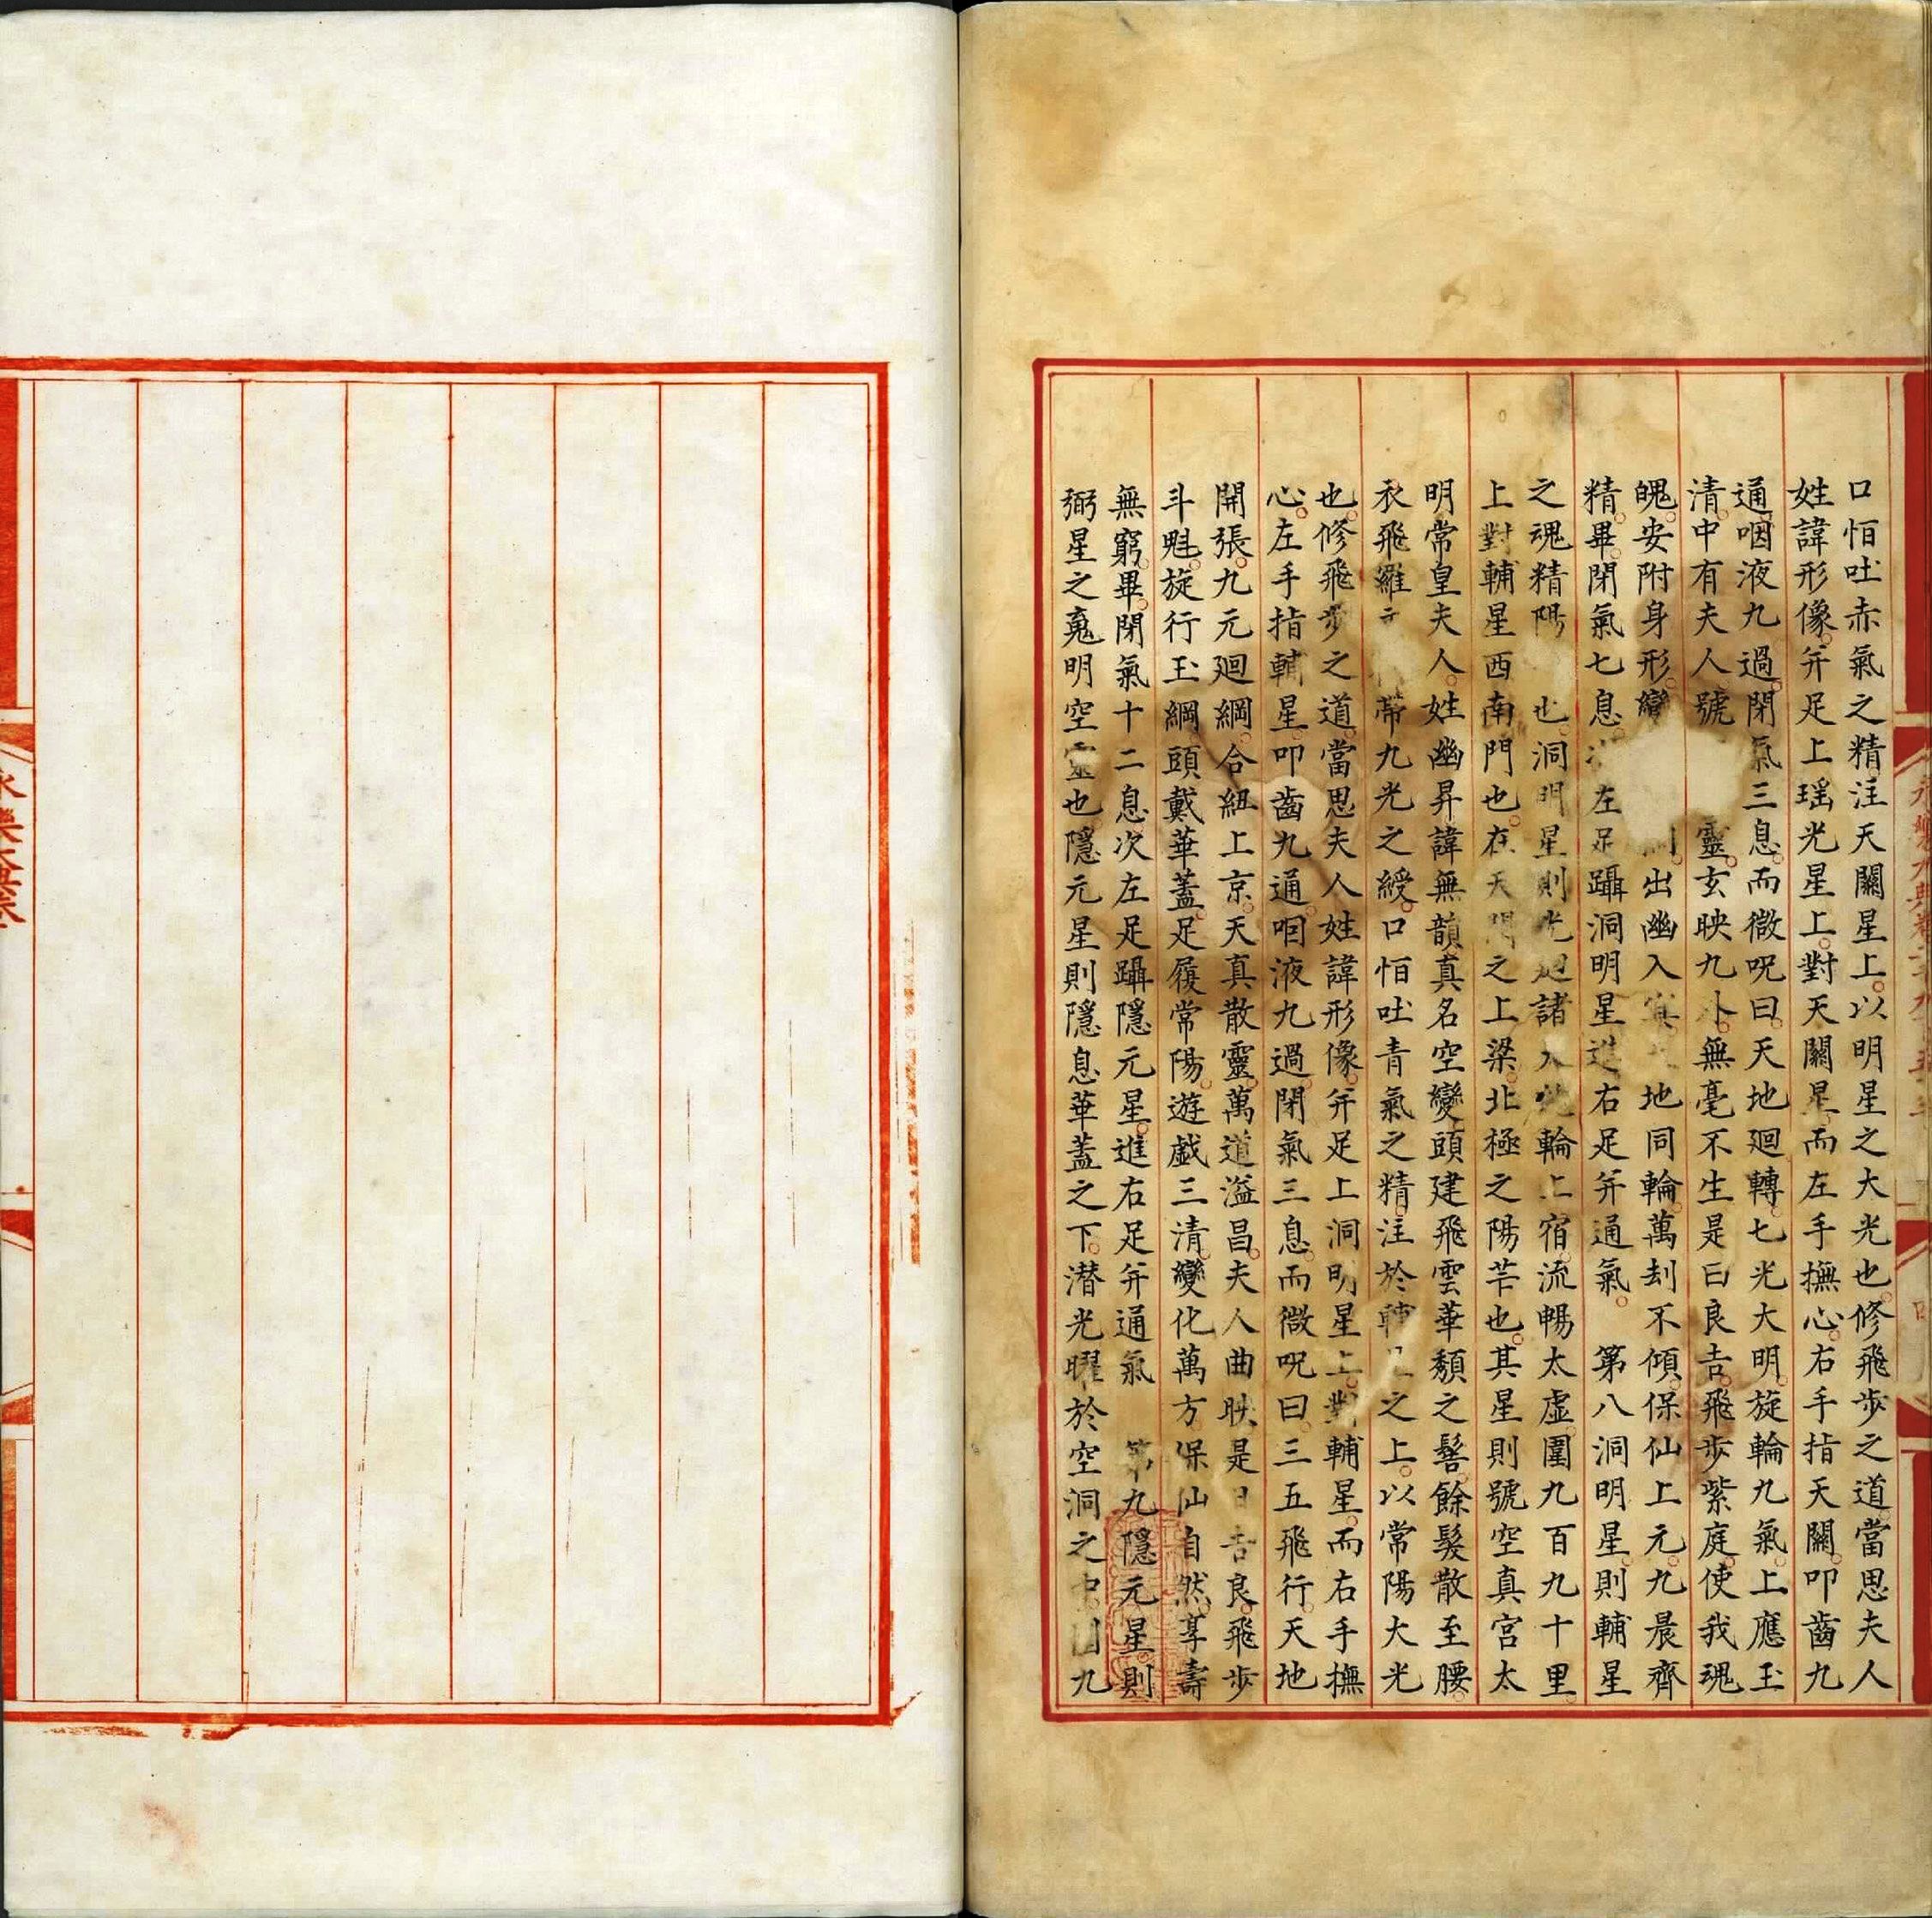 口怕吐赤氣之精注天關星上以明星之大光也修飛步之道當思夫人
姓諱形像并足上瑤光星上對天關星而左手撫心右手指天關叩齒九
通咽液九過閉氣三息而微呪曰天地廻轉七光大明旋輪九氣上應玉
清中有夫人號靈玄映九外無毫不生是曰良吉飛步紫庭使我魂
魄安附身形變出幽入地同輪萬刦不傾保仙上元九晨齊
精畢閉氣七息左足躡洞明星進右足并通氣 第八洞明星則輔星
之魂精陽也洞明星則光廻諸入輪上宿流暢太虛圍九百九十里
上對輔星西南門也在天之上梁北極之陽芒也其星則號空真宮太
明常皇夫人姓幽昇諱無韻真名空變頭建飛雲華頹之髻餘髮散至腰
衣飛羅帶九光之綬口怕吐青氣之精注於之上以常陽大光
也修飛步之道當思夫人姓諱形像并足上洞明星上對輔星而右手撫
心左手指輔星叩齒九通咽液九過閉氣三息而微呪曰三五飛行天地
開張九元廻綱合紐上京天真散靈萬道溢昌夫人曲映是吉良飛步
斗魁旋行玉綱頭戴華蓋足履常陽遊戲三清變化萬方保仙自然享壽
無窮畢閉氣十二息次左足躡隱元星進右足并通氣 第九隱元星則
弼星之䰟明空靈也隱元星則隱息華蓋之下潜光曜於空洞之中九
永樂大典卷